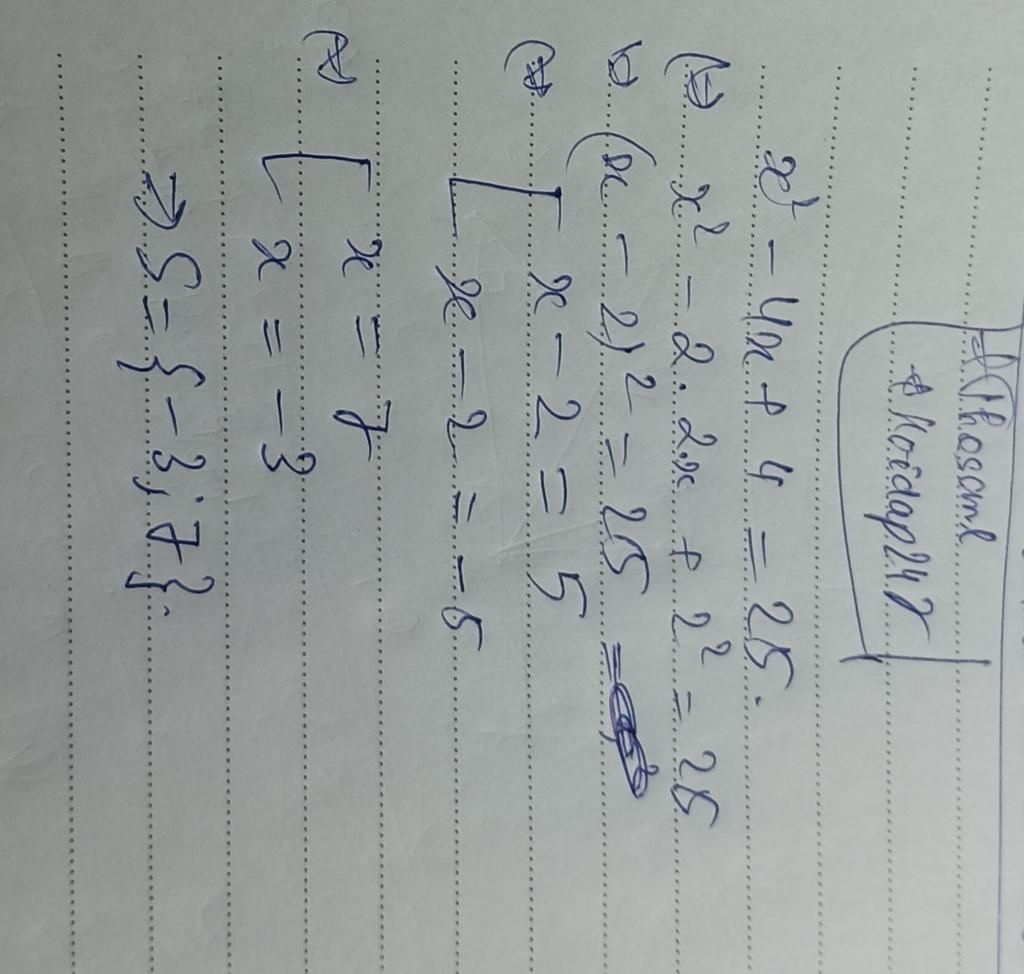 Hoidap247
x² - 4x + 4 = 25.
(⇔) x² - 2.2x + 2² = 25
⇔ (x - 2)² = 25 =
(⇔) [ x - 2 = 5
x - 2 = -5
(⇔) [ x = 7
x = -3
→ S = {-3; 7}.